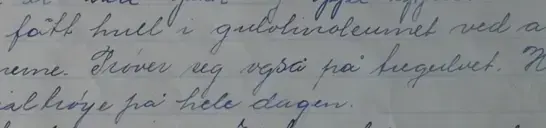 fått hull i gulvlinoleumet ved a
neme. Prøver seg også på tregulvet. H
altrøye på hele dagen.